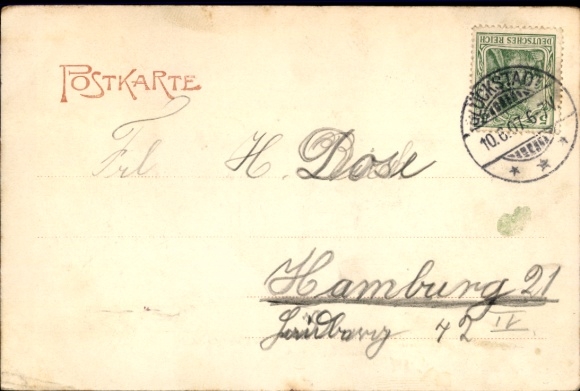 POSTKARTE
DEUTSCHES REICH
GLÜCKSTADT
10.6.07.6-7N
Frl H. Dose
Hamburg 21
42 IV.